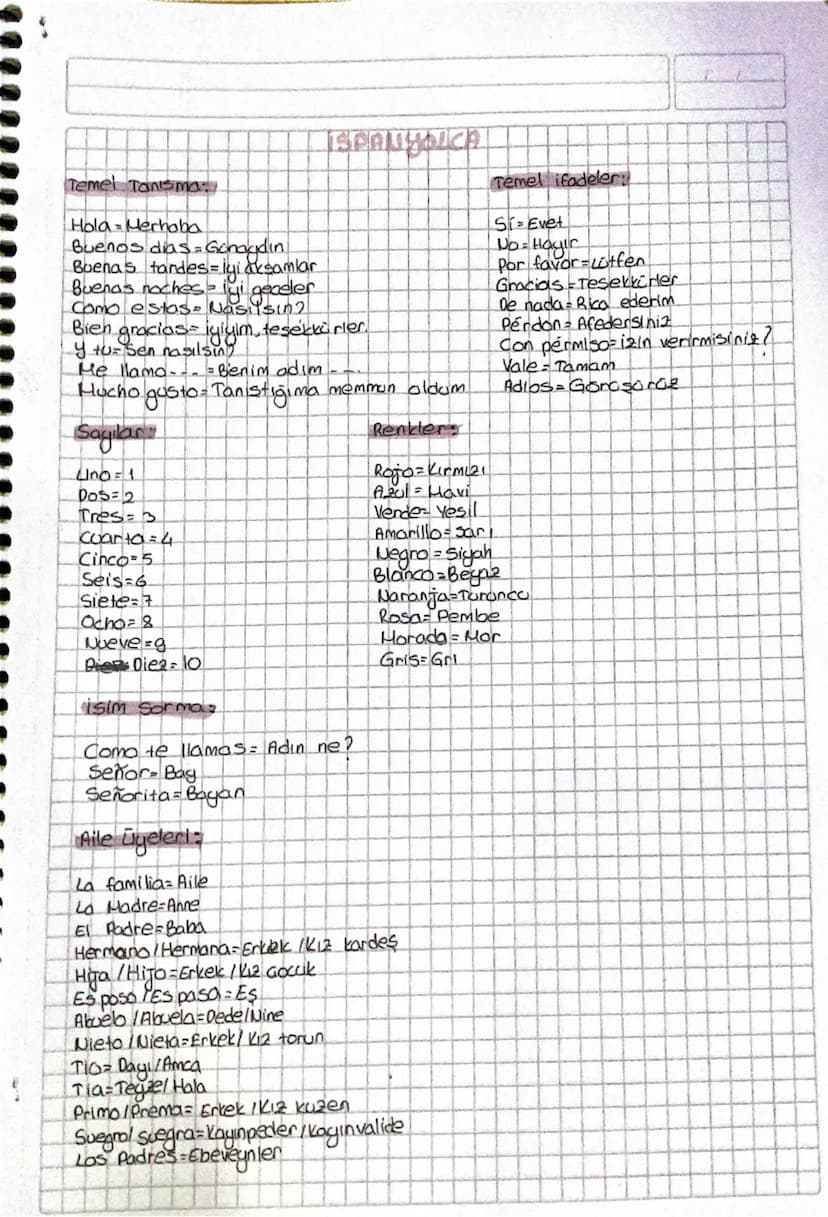 İSPANYOLCA
Temel Tanısma:
Hola = Merhaba
Buenos dias = Günaydın
Buenas tandes = iyi akşamlar
Buenas noches = iyi geceler
Como estas = Nasılsın?
Bien gracias = iyiyim, teşekkürler.
Y tu = Sen nasılsın?
Me llamo --- = Benim adım ---
Mucho gusto = Tanıstığıma memnun oldum
Temel ifadeler:
Sí = Evet
No = Hayır
Por favor = Lütfen
Gracias = Teşekkürler
De nada = Rica ederim
Pérdon = Afedersiniz
Con pérmiso = izin verirmisiniz?
Vale = Tamam
Adios = Görüşürüz
Sayılar:
Uno = 1
Dos = 2
Tres = 3
Cuarta = 4
Cinco = 5
Seis = 6
Siete = 7
Ocho = 8
Nueve = 9
Diez = 10
Renkler:
Rojo = Kırmızı
Azul = Mavi
Verde = Yesil
Amarillo = Sarı
Negro = Siyah
Blanco = Beyaz
Naranja = Turuncu
Rosa = Pembe
Morada = Mor
Gris = Gri
isim sorma:
Como te llamas = Adın ne?
Señor = Bay
Señorita = Bayan
Aile Üyeleri:
La familia = Aile
La Madre = Anne
El Padre = Baba
Hermano / Hermana = Erkek / Kız kardeş
Hija / Hijo = Erkek / Kız çocuk
Es poso / Es pasa = Eş
Abuelo / Abuela = Dede / Nine
Nieto / Nieta = Erkek / Kız torun
Tio = Dayı / Amca
Tia = Teyze / Hala
Primo / Prema = Erkek / Kız kuzen
Suegro / suegra = Kayınpeder / kayınvalide
Los Padres = Ebeveynler